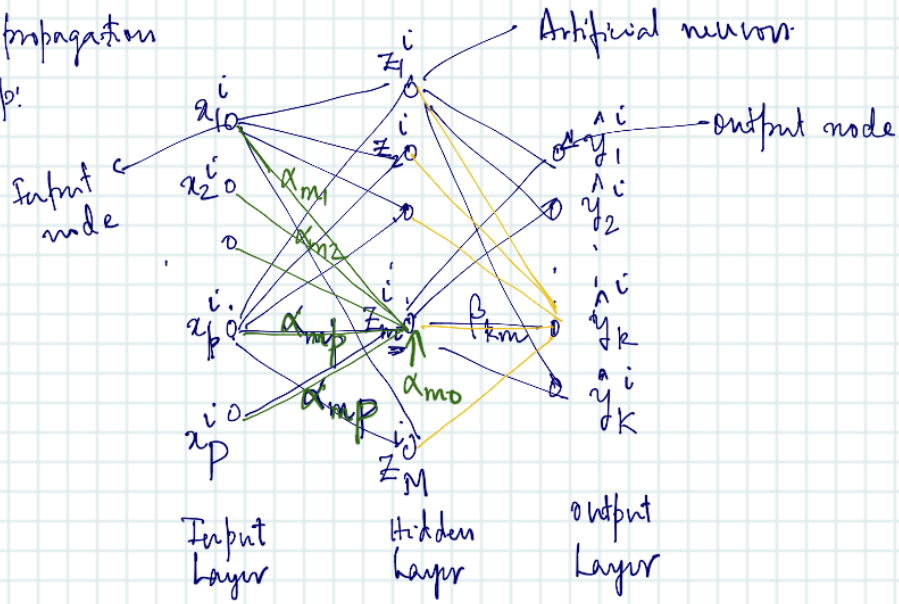 propagation
p:
Artificial neuron
output node
Input node
x₁ⁱ
x₂ⁱ
xₚⁱ
x_Pⁱ
z₁ⁱ
z₂ⁱ
z_mⁱ
z_Mⁱ
ŷ₁ⁱ
ŷ₂ⁱ
ŷ_kⁱ
ŷ_Kⁱ
α_m1
α_m2
α_mp
α_mP
α_m0
β_km
Input Layer
Hidden Layer
output Layer